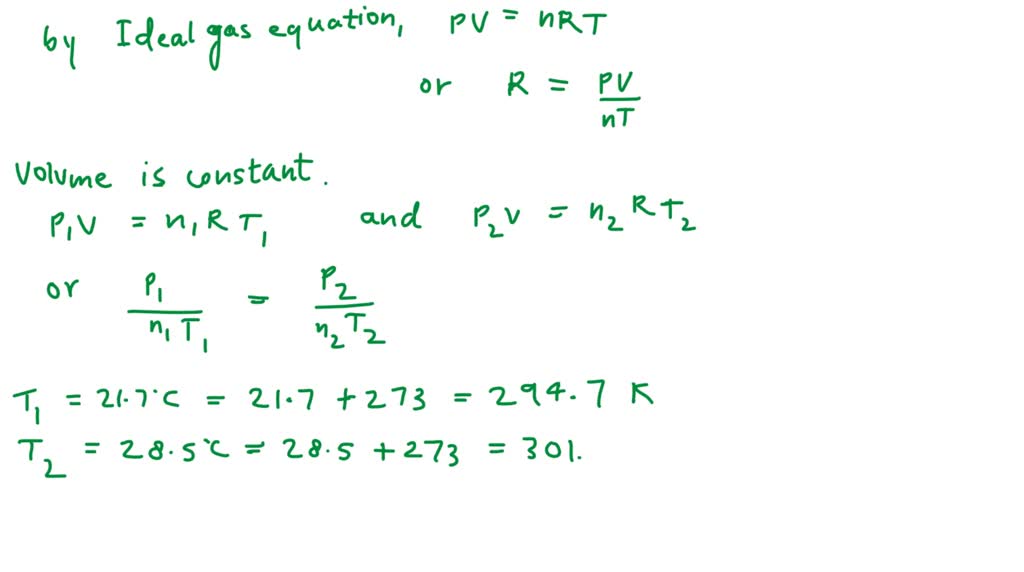 by Ideal gas equation, PV = nRT
or R = PV/nT
Volume is constant.
P₁V = n₁RT₁ and P₂V = n₂RT₂
or P₁/n₁T₁ = P₂/n₂T₂
T₁ = 21.7°C = 21.7 + 273 = 294.7 K
T₂ = 28.5°C = 28.5 + 273 = 301.